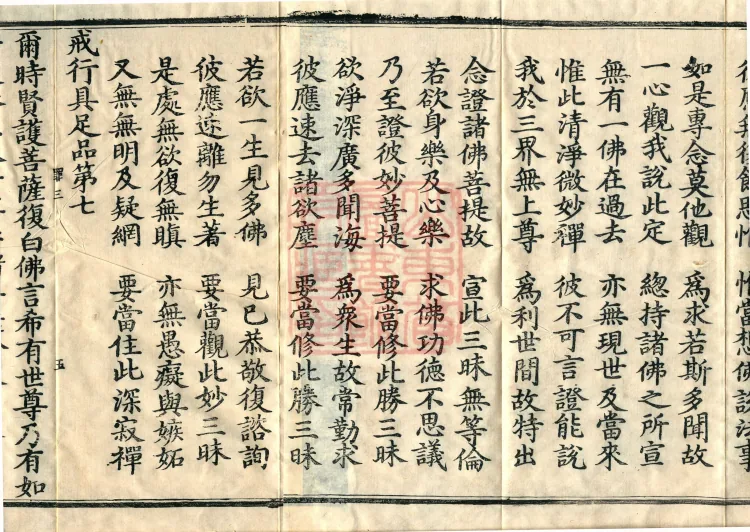 惟當想佛說法事
如是專念莫他觀　爲求若斯多聞故
一心觀我說此定　緫持諸佛之所宣
無有一佛在過去　亦無現世及當來
惟此清淨微妙禪　彼不可言證能說
我於三界無上尊　爲利世間故特出
念證諸佛菩提故　宣此三昧無等倫
若欲身樂及心樂　求佛功德不思議
乃至證彼妙菩提　要當修此勝三昧
欲淨深廣多聞海　爲衆生故常勤求
彼應速去諸欲塵　要當修此勝三昧
若欲一生見多佛　見已恭敬復諮詢
彼應逺離勿生著　要當觀此妙三昧
是處無欲復無瞋　亦無愚癡與嫉妬
又無無明及疑網　要當住此深寂禪
戒行具足品第七
三　五
爾時賢護菩薩復白佛言希有世尊乃有如